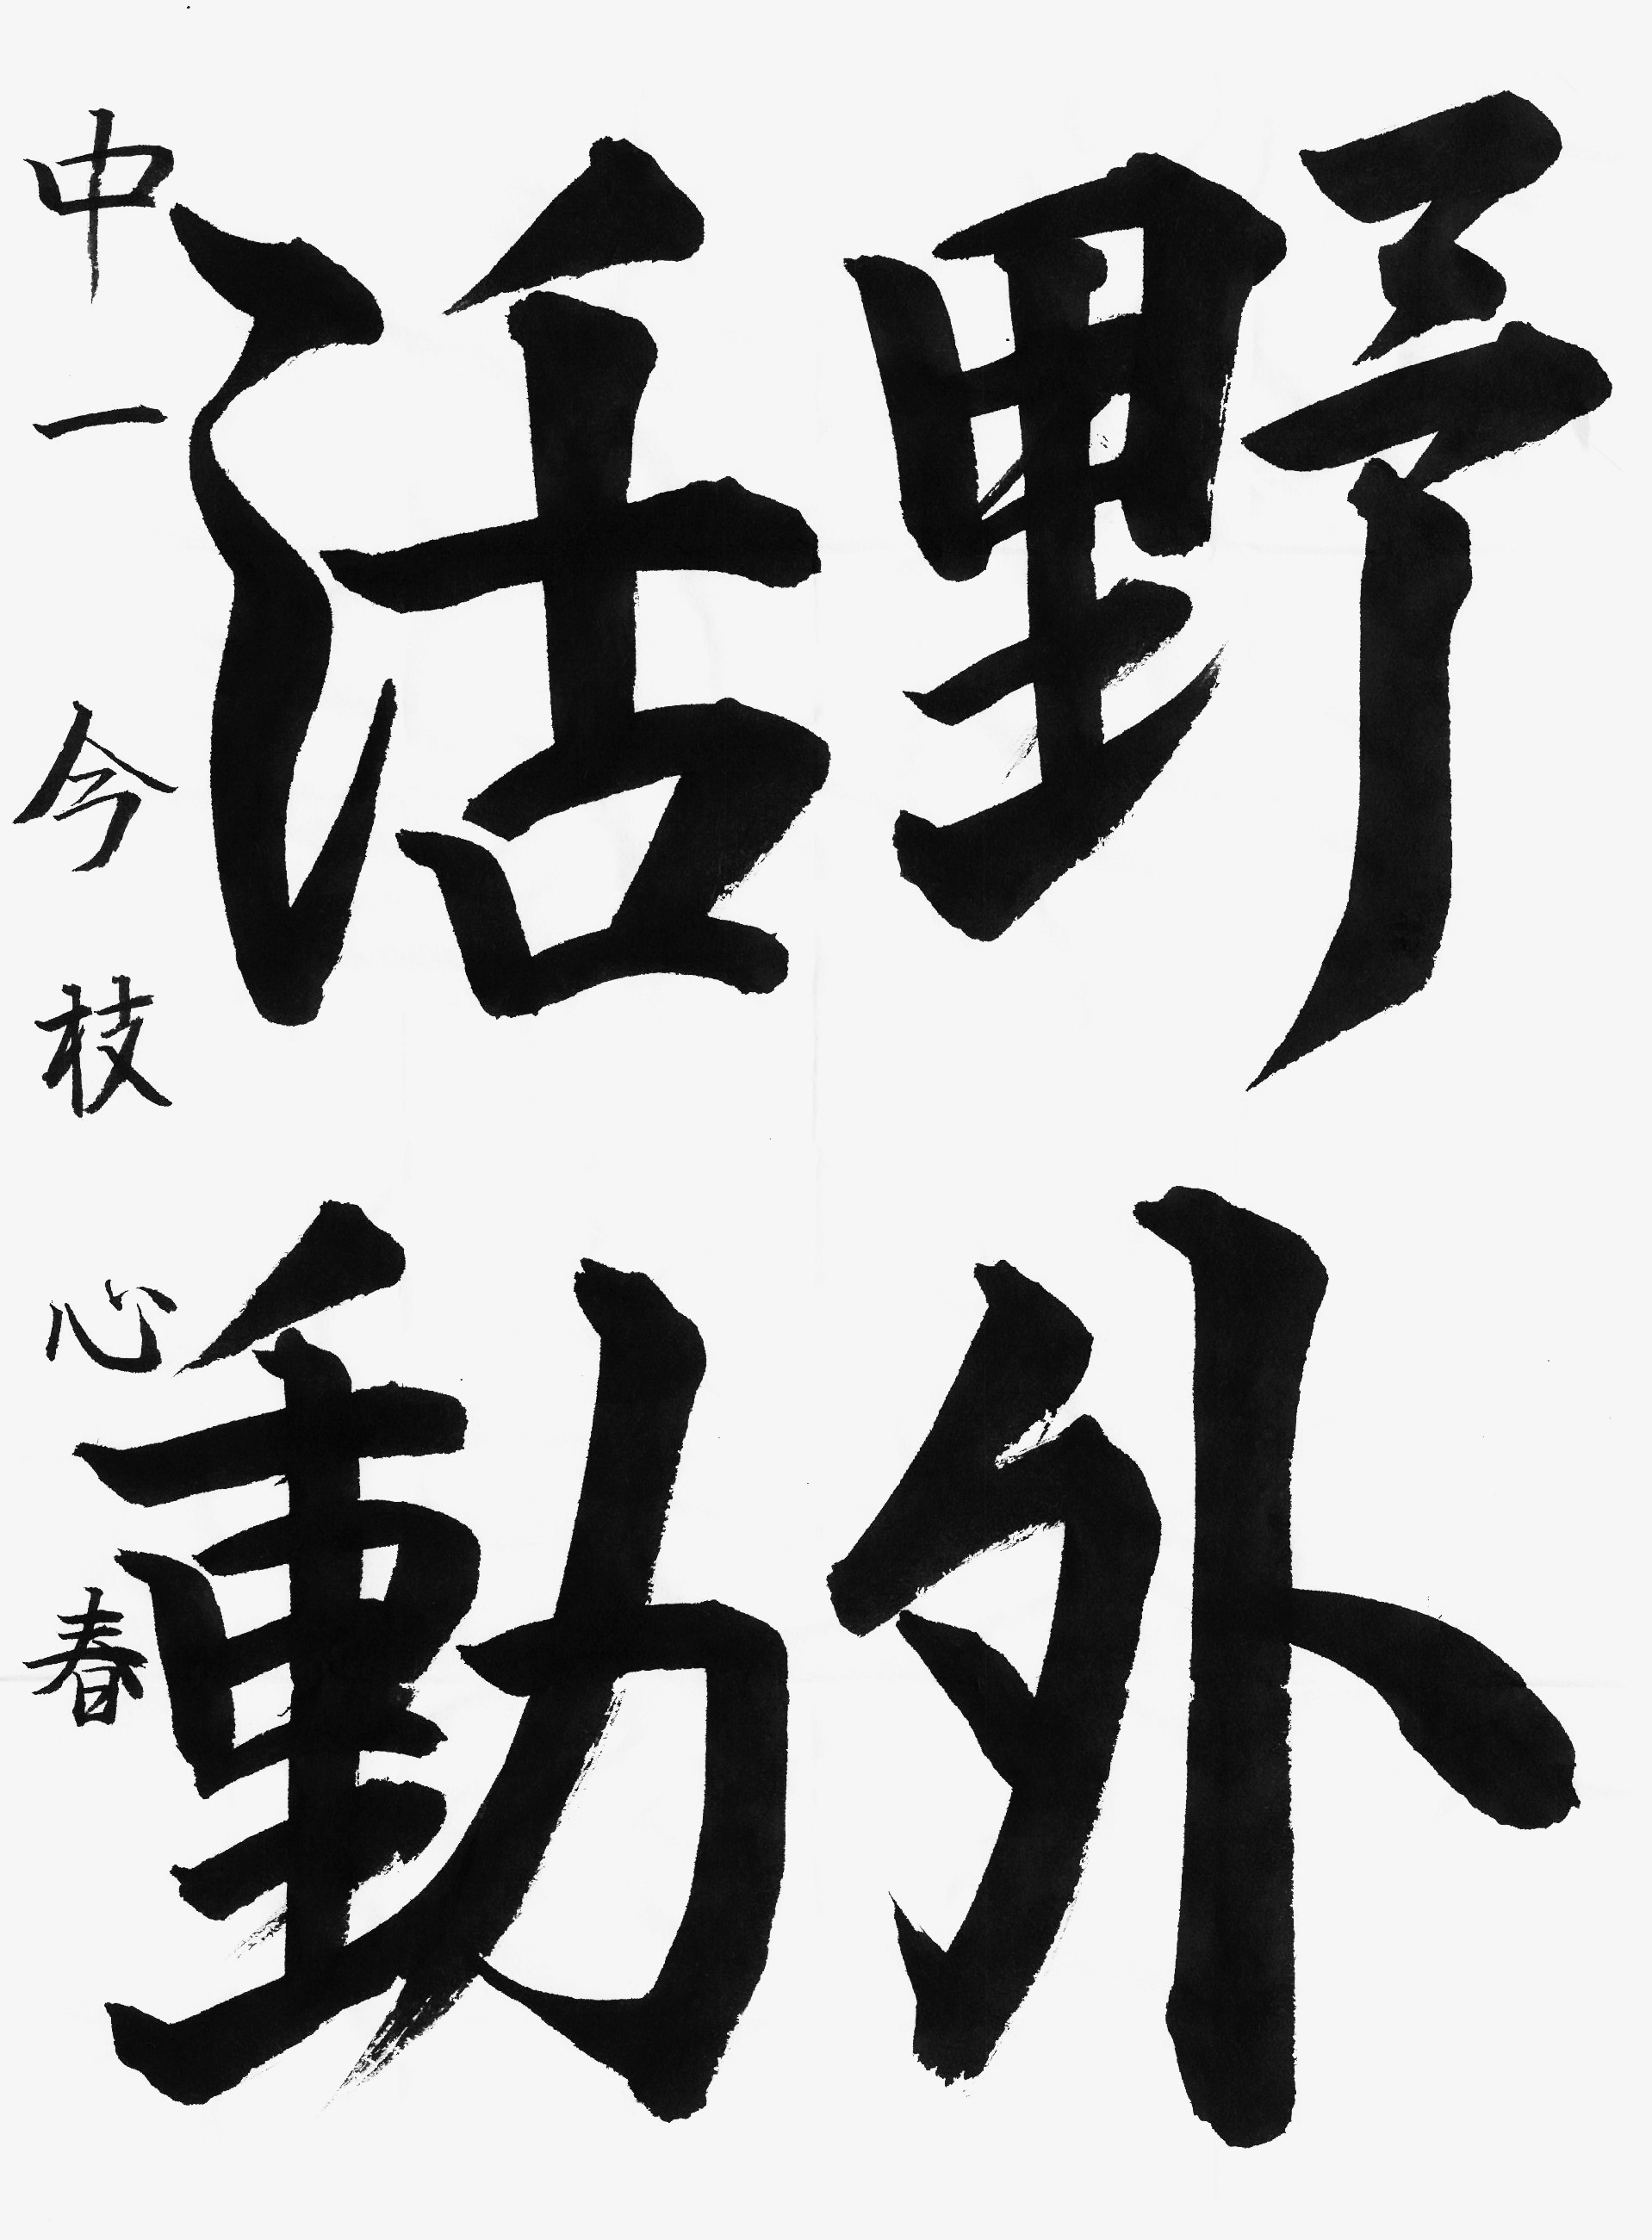 野外
活動
中一 今枝心春